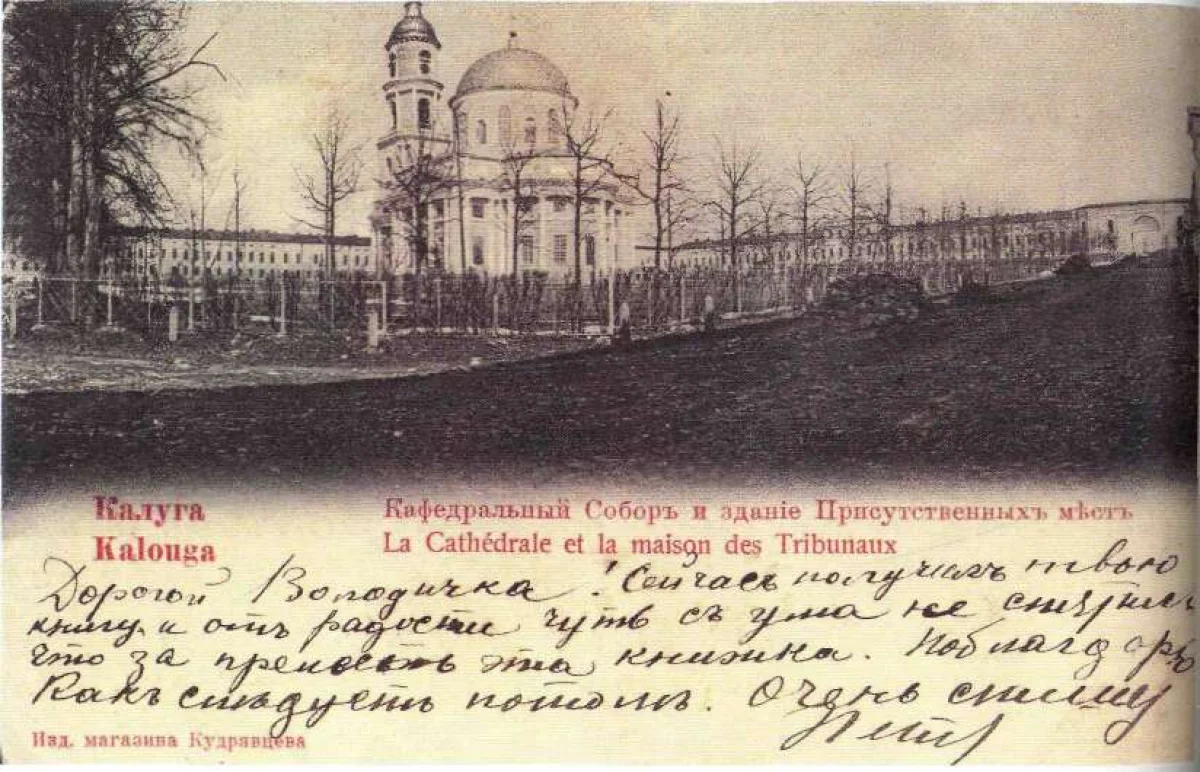 Калуга
Kalouga
Кафедральный Соборъ и зданіе Присутственныхъ мѣстъ
La Cathédrale et la maison des Tribunaux
Дорогой Володичка! Сейчасъ получилъ твою
книгу и отъ радости чуть съ ума не
что за прелесть эта книжка. Поблагодарю
Какъ слѣдуетъ потомъ. Очень спешу
Петр
Изд. магазина Кудрявцева